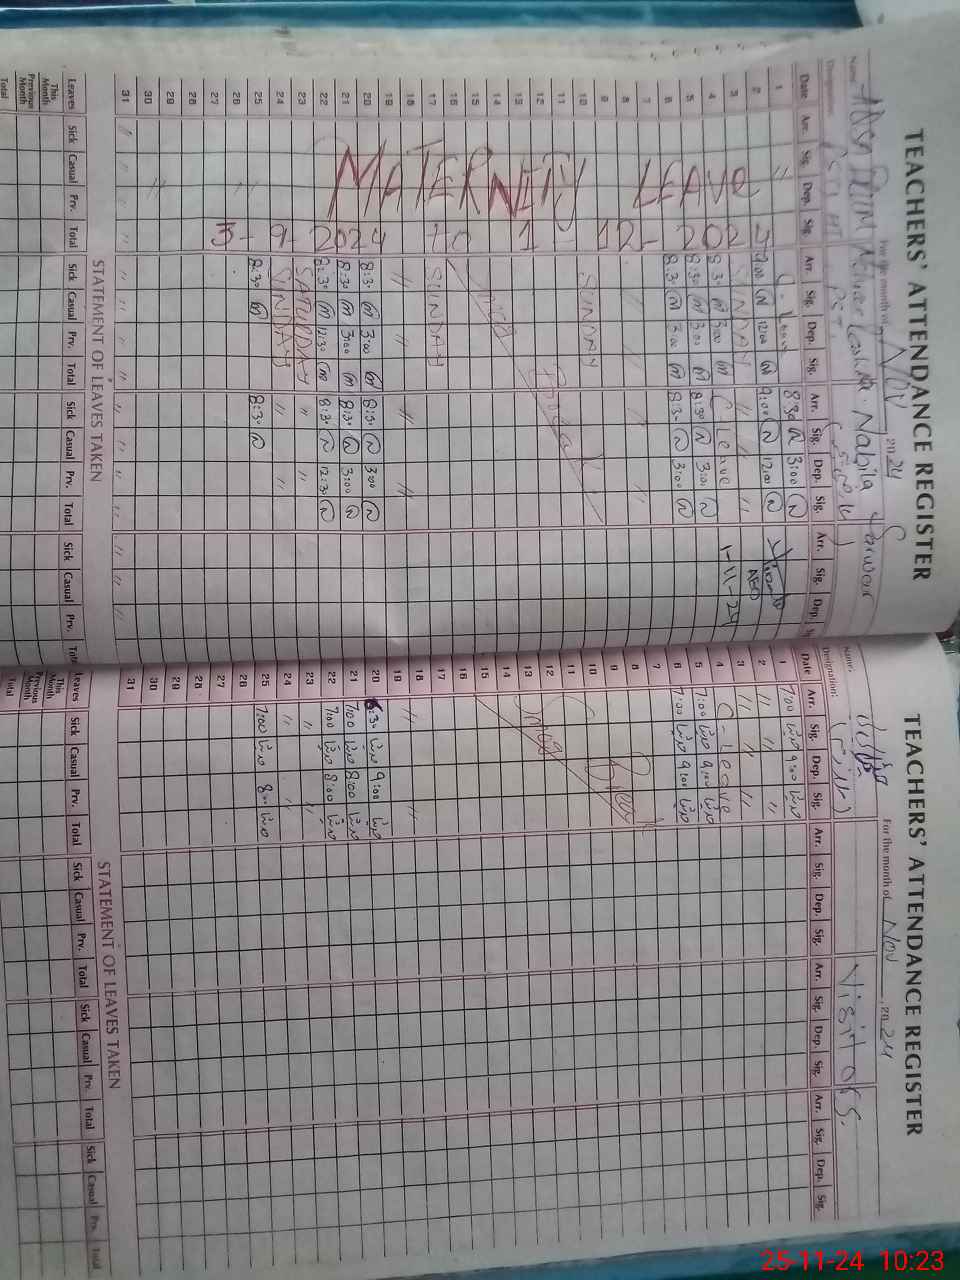 TEACHERS' ATTENDANCE REGISTER
For the month of Nov 2024
Name
Designation:
Nabila Sarwar
PST
Date Arr. Sig. Dep. Sig. Arr. Sig. Dep. Sig. Arr. Sig. Dep. Sig. Arr. Sig. Dep.
1 " C. Leave 8:30 N 3:00 N
2 9:00 N 12:00 N 9:00 N 12:00 N AEO
3 SUNDAY " " 1-11-24
4 8:30 m 3:00 m C Leave
5 8:30 m 3:00 m 8:30 N 3:00 N
6 8:30 m 3:00 m 8:30 N 3:00 N
7
8
9
10 SUNDAY
11
12
13
14
15 Smog
16
17 SUNDAY
18 " " "
19
20 8:30 m 3:00 m 8:30 N 3:00 N
21 8:30 m 3:00 m 8:30 N 3:00 N
22 8:30 m 12:30 m 8:30 N 12:30 N
23 SATURDAY " "
24 SUNDAY " "
25 8:30 m 8:30 N
26
27
28
29
30
31
MATERNITY LEAVE
3-9-2024 to 1-12-2024
STATEMENT OF LEAVES TAKEN
Leaves Sick Casual Prv. Total Sick Casual Prv. Total Sick Casual Prv. Total Sick Casual Prv.
This Month
Previous Month
Total
TEACHERS' ATTENDANCE REGISTER
For the month of Nov 2024
Name.
Designation:
Visitors.
Date Arr. Sig. Dep. Sig. Arr. Sig. Dep. Sig. Arr. Sig. Dep. Sig. Arr. Sig. Dep. Sig.
1 7:00 9:00
2 " " "
3 " " "
4 C-Leave
5 7:00 9:00
6 7:00 9:00
7
8
9
10
11
12
13 Smog
14
15
16
17
18 " "
19
20 8:30 9:00
21 7:00 8:00
22 7:00 8:00
23 " "
24 " "
25 7:00 8:00
26
27
28
29
30
31
STATEMENT OF LEAVES TAKEN
Leaves Sick Casual Prv. Total Sick Casual Prv. Total Sick Casual Prv. Total Sick Casual Prv. Total
This Month
Previous Month
Total
25-11-24 10:23